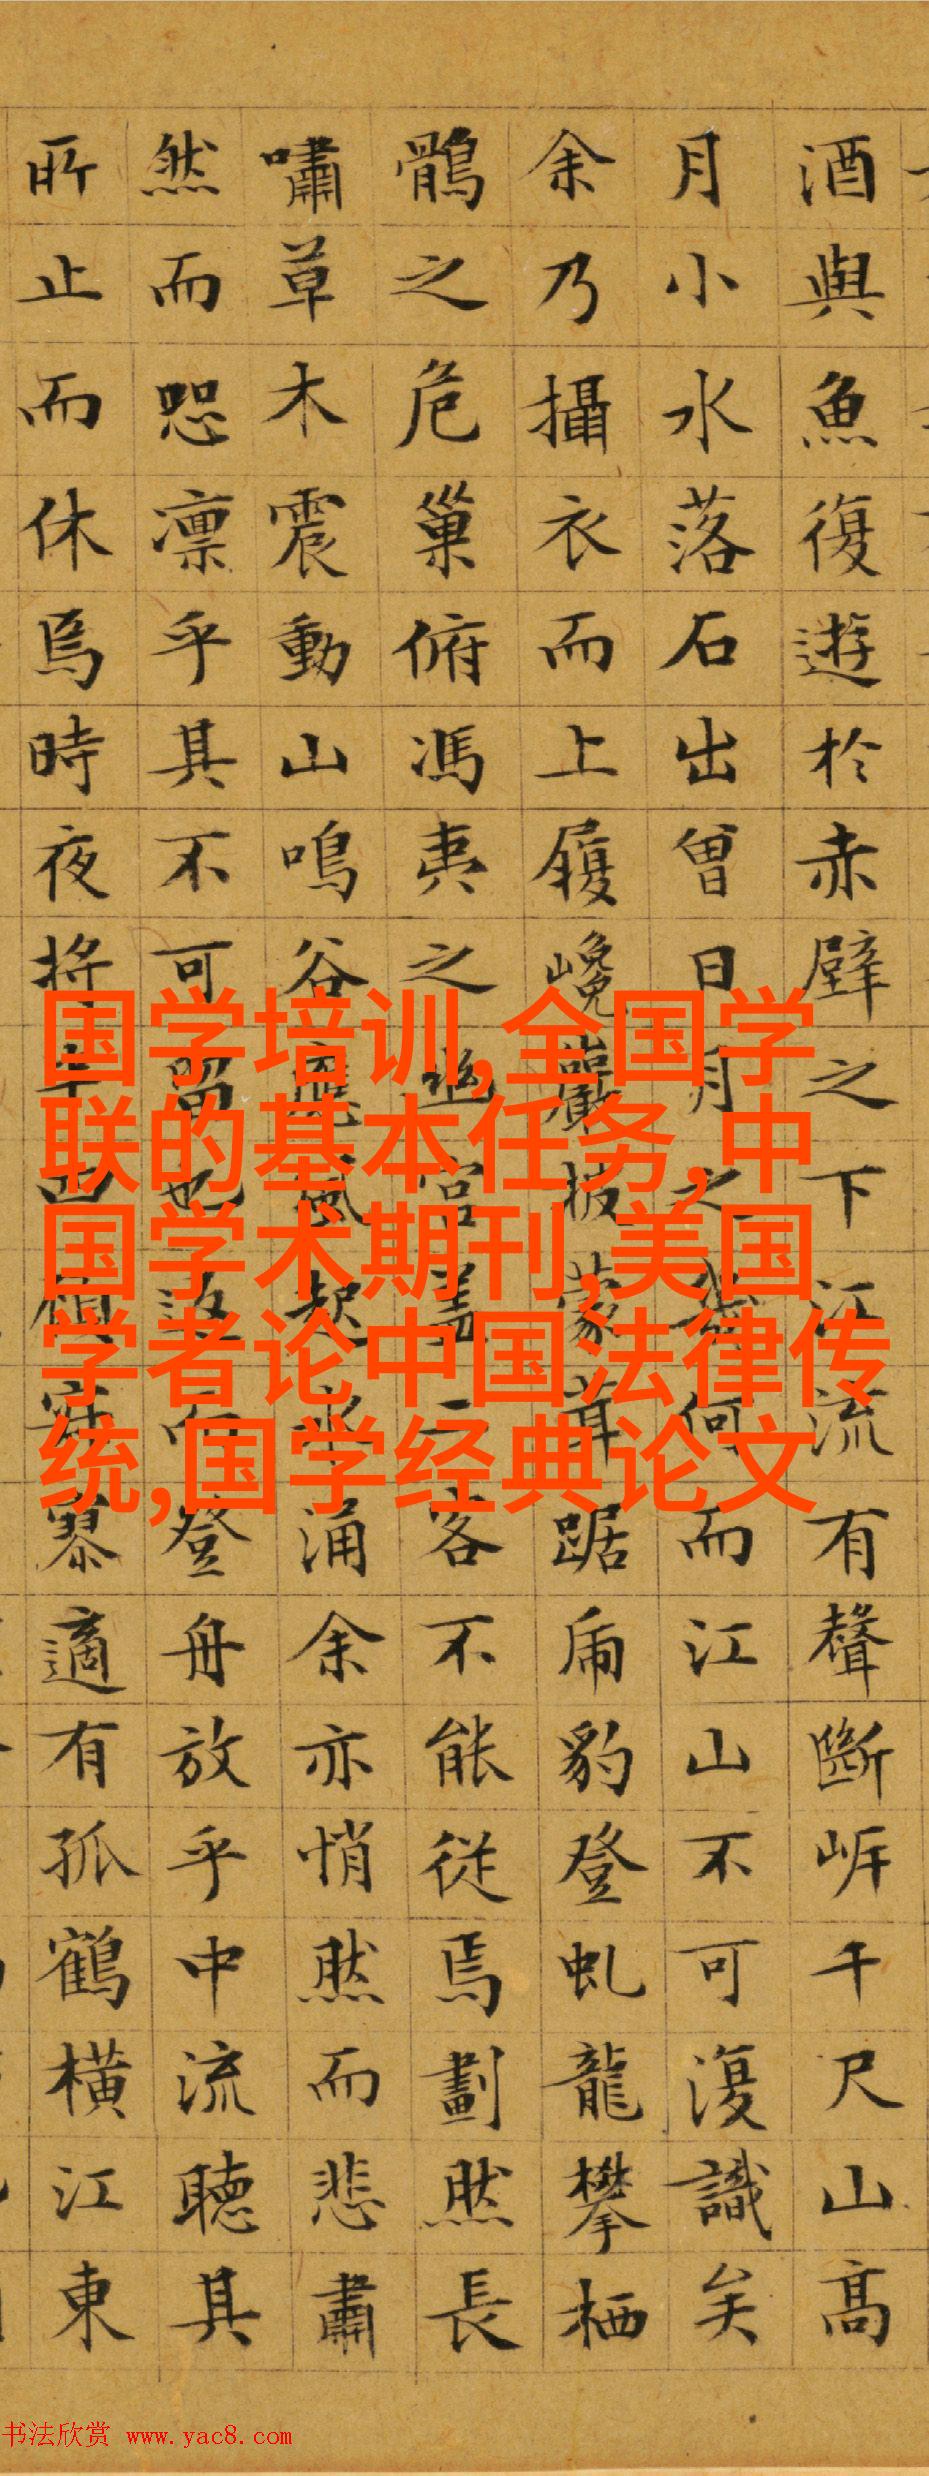 酒與魚復遊於赤壁之下江流有聲斷岸千尺山高
月小水落石出曾日月之幾何而江山不可復識矣
余乃攝衣而上履巉巖披蒙茸踞虎豹登虬龍攀栖
鶻之危巢俯馮夷之幽宮蓋二客不能從焉劃然長
嘯草木震動山鳴谷應風起水涌余亦悄然而悲肅
然而恐凛乎其不可留也返而登舟放乎中流聽其
所止而休焉時夜將半四顧寂寥適有孤鶴橫江東
国学培训,全国学
联的基本任务,中
国学术期刊,美国
学者论中国法律传
统,国学经典论文
书法欣赏 www.yac8.com